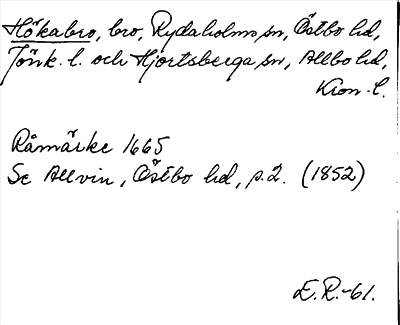 Hökabro, bro, Rydaholms sn, Östbo hd,
Jönk. l. och Hjortsberga sn, Allbo hd,
Kron. l.
Råmärke 1665
Se Allvin, Östbo hd, p. 2. (1852)
E. R.-61.